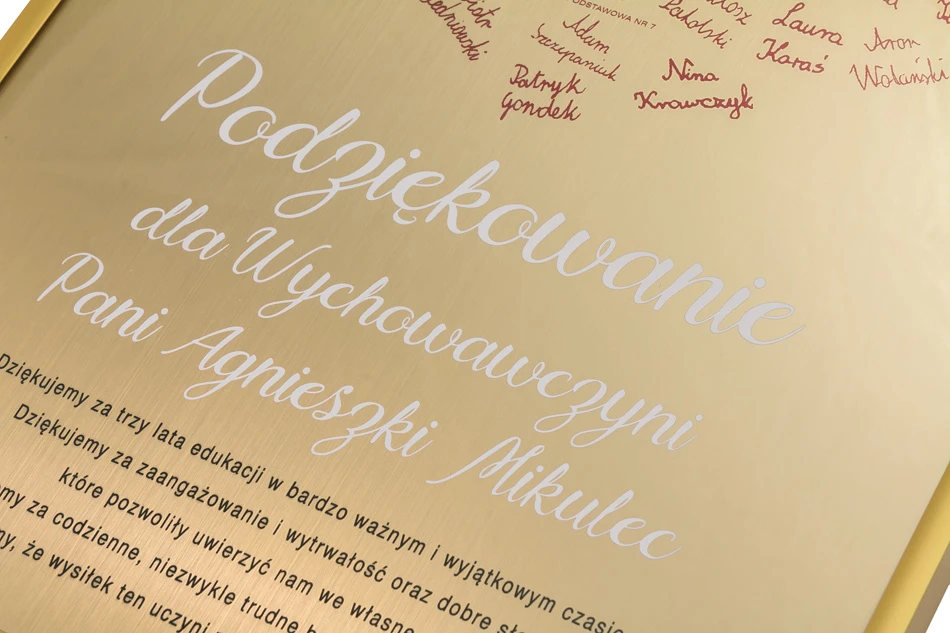 PODSTAWOWA NR 7
Pakolski
Laura
Karaś
Aron
Wolański
Adam
Szczepaniuk
Patryk
Gondek
Nina
Krawczyk
Podziękowanie
dla Wychowawczyni
Pani Agnieszki Mikulec
Dziękujemy za trzy lata edukacji w bardzo ważnym i wyjątkowym czasie
Dziękujemy za zaangażowanie i wytrwałość oraz dobre
które pozwoliły uwierzyć nam we własne
za codzienne, niezwykle trudne
że wysiłek ten uczyni